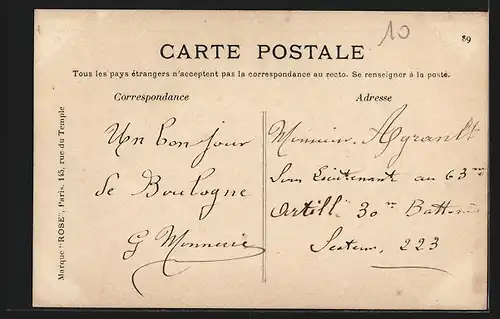 10
89
CARTE POSTALE
Tous les pays étrangers n'acceptent pas la correspondance au recto. Se renseigner à la poste.
Correspondance
Adresse
Un bonjour
de Boulogne
G Monnerie
Monsieur Agrault
Sous Lieutenant au 63me
Artill 30me Batterie
Secteur, 223
Marque "ROSE", Paris. 145, rue du Temple